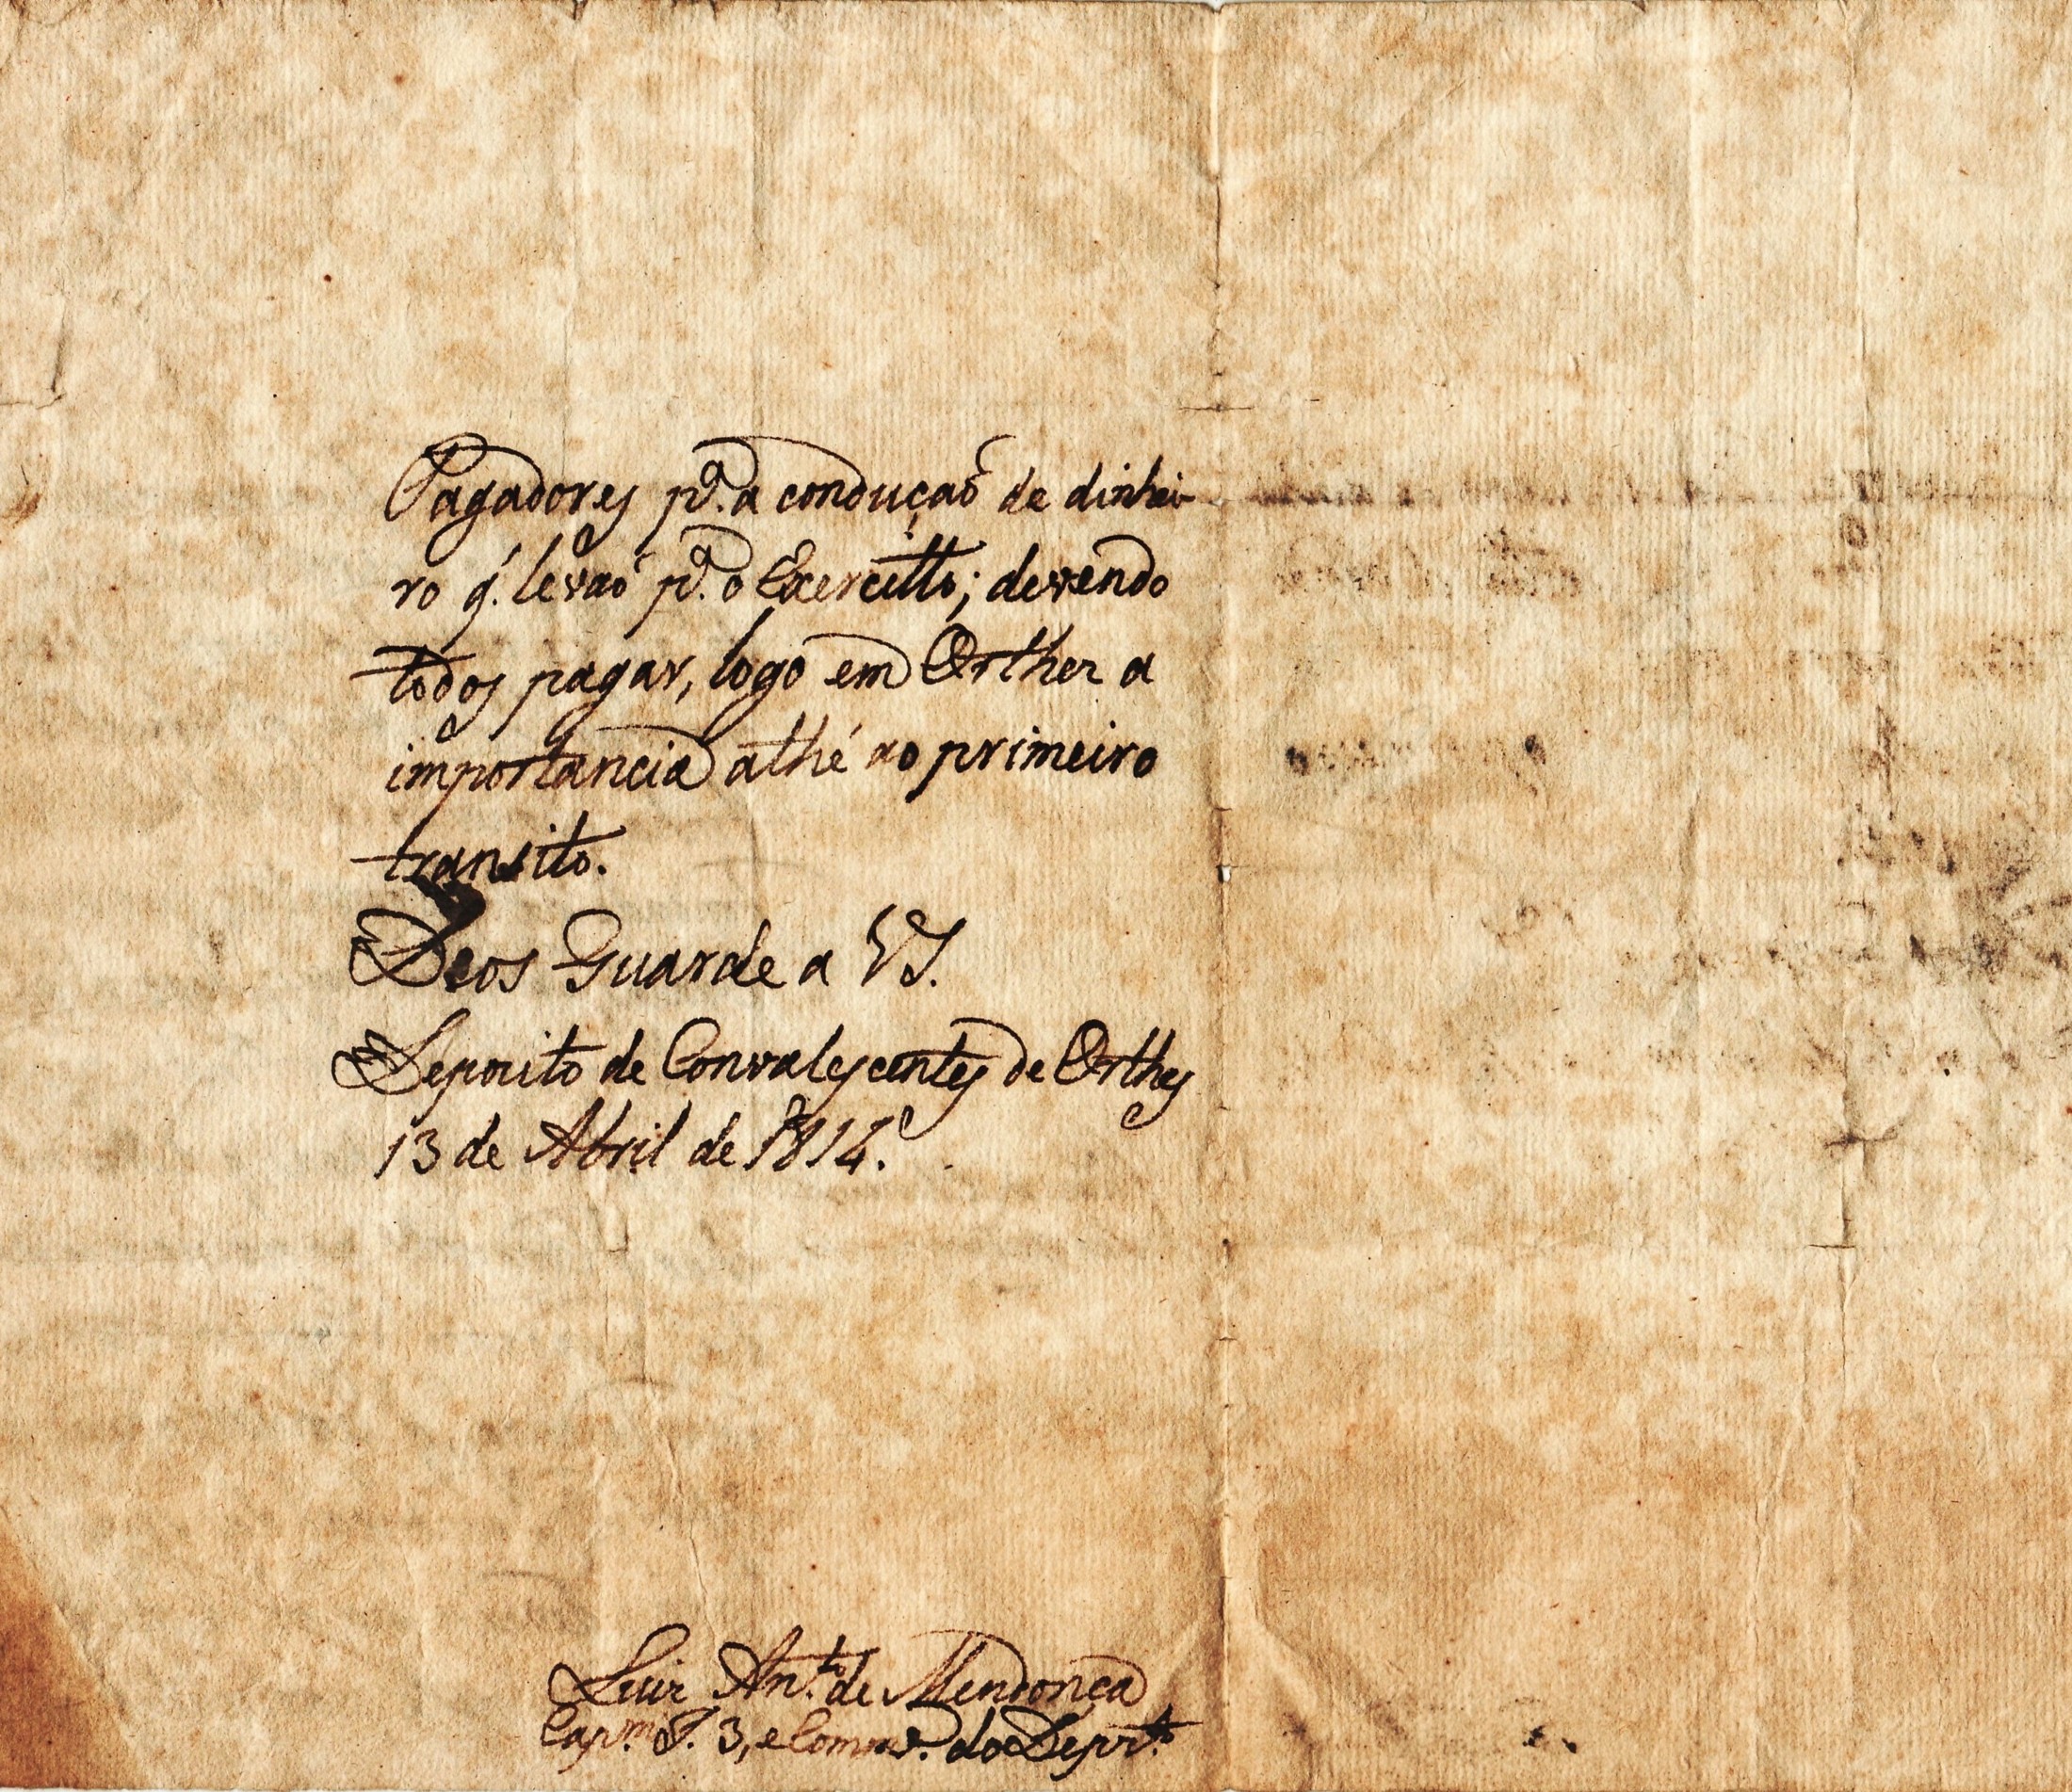 Pagadores pª. a conduçaõ de dinhei-
ro q'. levaõ pª. o Exercitto; devendo
todos pagar, logo em Orthez a
importancia athé ao primeiro
transito.
Deos Guarde a VS.
Deposito de Convalescentes de Orthes
13 de Abril de 1814.
Luiz Antº. de Mendonça
Capm. 3, e Comme. do Depto.